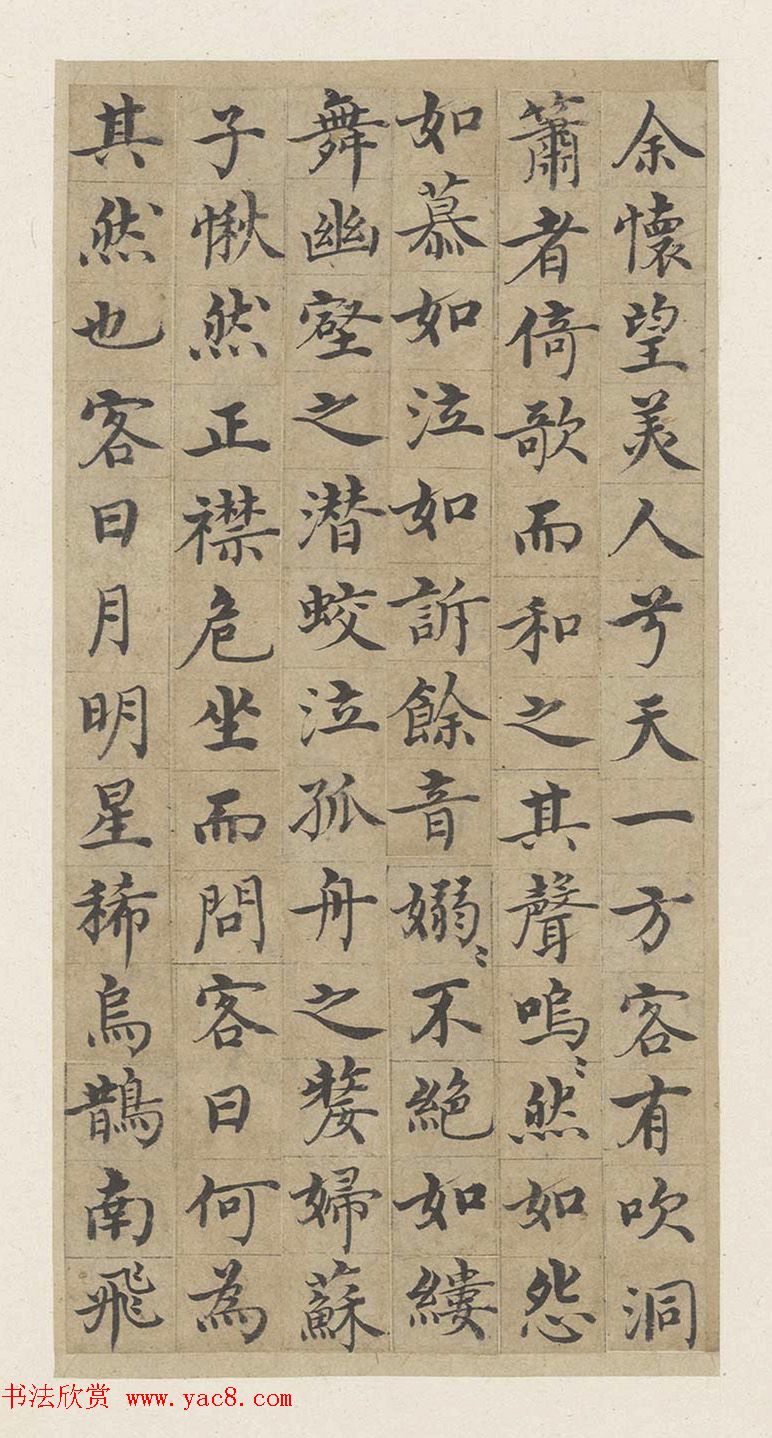 余懷望美人兮天一方客有吹洞
簫者倚歌而和之其聲嗚〻然如怨
如慕如泣如訴餘音嫋〻不絕如縷
舞幽壑之潛蛟泣孤舟之嫠婦蘇
子愀然正襟危坐而問客曰何為
其然也客曰月明星稀烏鵲南飛
书法欣赏 www.yac8.com